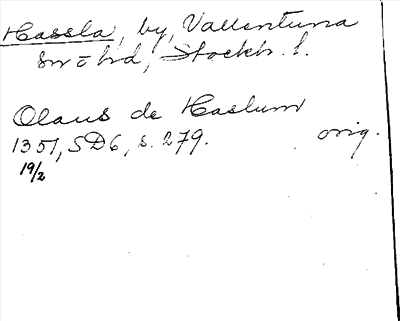 Hassla, by, Vallentuna
sn o hd, Stockh. l.
Olaus de Haslum
1351, SD6, s. 279. orig.
19/2